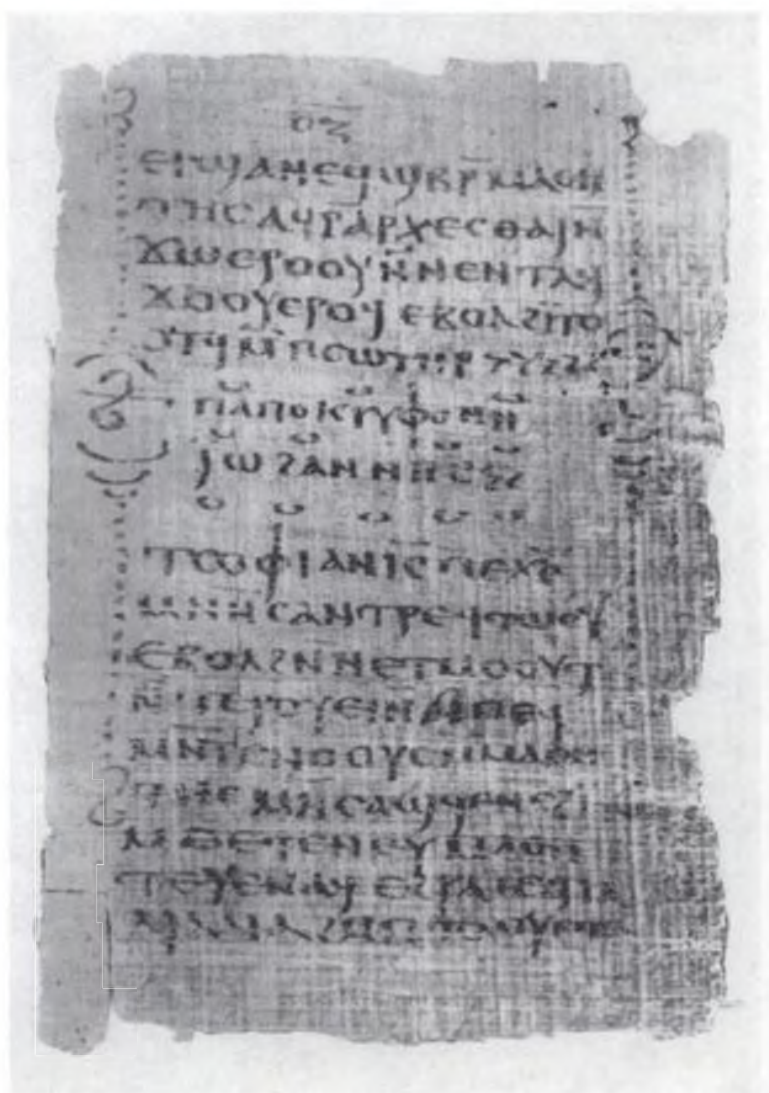 ⲟⲍ
ⲉⲓ ϣⲁ ⲛⲉϥϣⲃⲣ̄ⲙⲁⲑⲏ
ⲧⲏⲥ ⲁϥⲣ̄ⲁⲣⲭⲉⲥⲑⲁⲓ ⲛ̄
ϫⲱ ⲉⲣⲟⲟⲩ ⲛ̄ⲛⲉⲛⲧⲁⲩ
ϫⲟⲟⲩ ⲉⲣⲟϥ ⲉⲃⲟⲗ ϩⲓⲧⲟ
ⲟⲧϥ ⲙ̄ⲡⲥⲱⲧⲏⲣ
ⲡⲁⲡⲟⲕⲣⲩⲫⲟⲛ ⲛ̄
ⲓⲱϩⲁⲛⲛⲏⲥ
ⲧⲥⲟⲫⲓⲁ ⲛⲓ̄ⲥ̄ ⲡⲉⲭ̄ⲥ̄
ⲙⲛ̄ⲛ̄ⲥⲁ ⲛⲧⲣⲉϥⲧⲱⲟⲩⲛ
ⲉⲃⲟⲗ ϩⲛ̄ ⲛⲉⲧⲙⲟⲟⲩⲧ
ⲙⲛ̄ⲧⲥⲛⲟⲟⲩⲥ ⲙⲙⲁⲑⲏ
ⲧⲏⲥ ⲙⲛ̄ ⲥⲁϣϥⲉ ⲛⲥϩⲓ
ⲙⲉ ⲉⲧⲉⲛⲉⲩⲙⲁⲑⲏ
ⲧⲉⲩⲉ ⲛⲁϥ ⲉϩⲣⲁⲓ